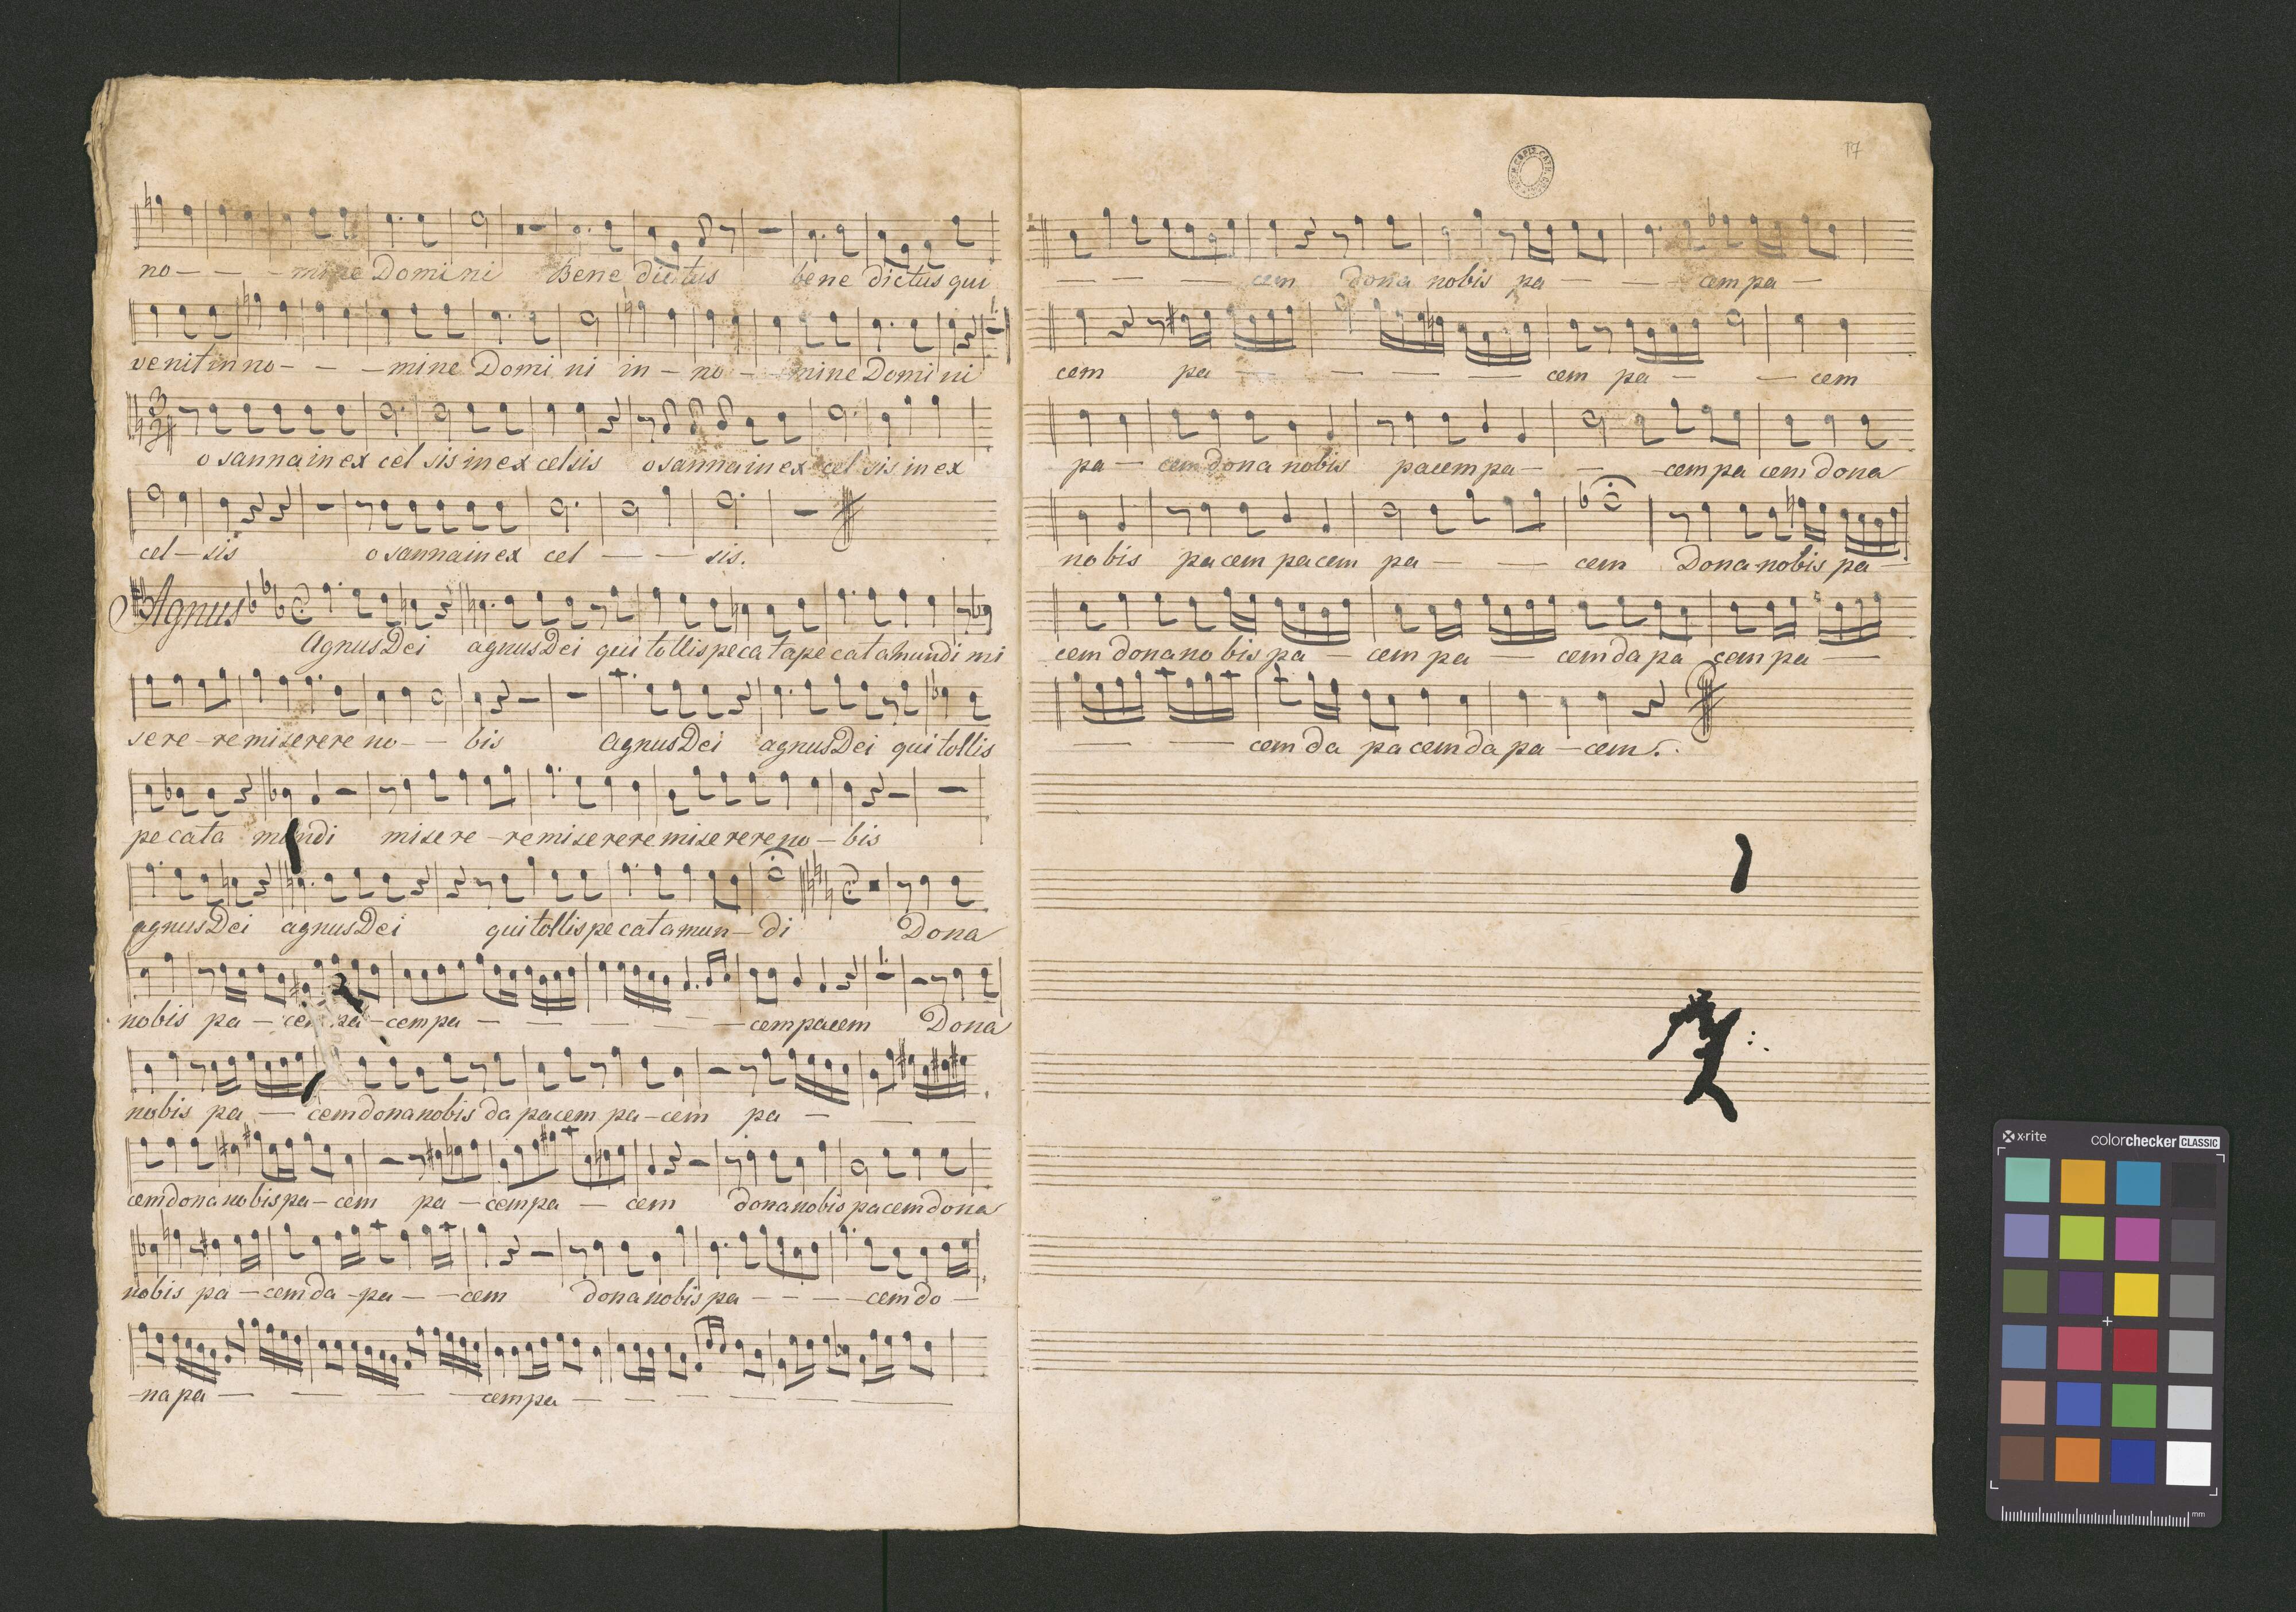 no - - - mine Domini Bene dictus bene dictus qui
venit in no - - - mine Domi ni in - no - - mine Domi ni
3
2
o sanna in ex cel sis in ex celsis o sanna in ex cel sis in ex
cel - sis o sanna in ex cel - - sis.
Agnus
Agnus Dei agnus Dei qui tollis pe ca ta pe cata mundi mi
se re - re mi serere no - - bis Agnus Dei agnus Dei qui tollis
pe cata mundi mise re - re mi se rere mi se rere no - bis
agnus Dei agnus Dei qui tollis pe cata mun - di Dona
nobis pa - cem pa - cem pa - - - - - - cem pacem Dona
nobis pa - cem dona nobis da pacem pa - cem pa - - -
cem dona nobis pa - cem pa - cem pa - cem dona nobis pacem dona
nobis pa - cem da - pa - - cem dona nobis pa - - - - cem do -
- na pa - - - - - cem pa - - - - - -
17
- - - cem dona nobis pa - - - cem pa -
cem pa - - - - cem pa - - cem
pa - cem dona nobis pacem pa - - - cem pa cem dona
no bis pa cem pa cem pa - - cem Dona nobis pa -
cem dona no bis pa - cem pa - cem da pa cem pa -
- - - cem da pa cem da pa - cem.
x-rite
colorchecker CLASSIC
mm